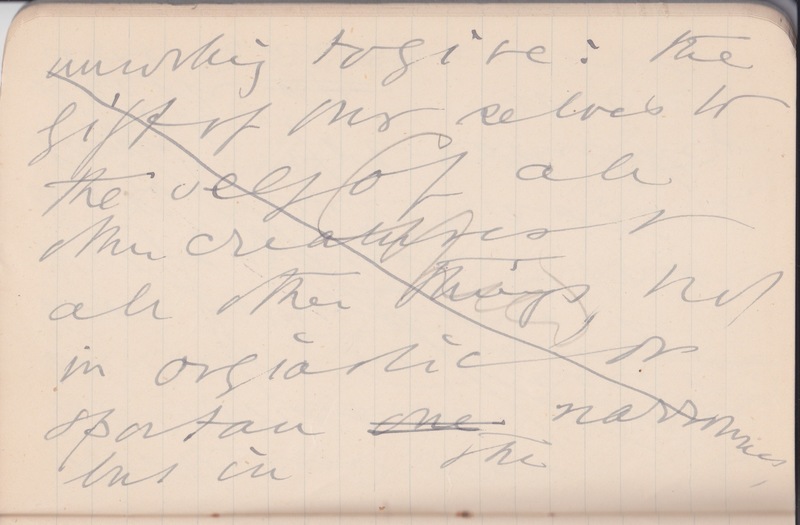 to give: the
gift of our selves to
the self of all
other creatures &
all other things, not
in orgiastic or
spartan one narrowness,
but in the